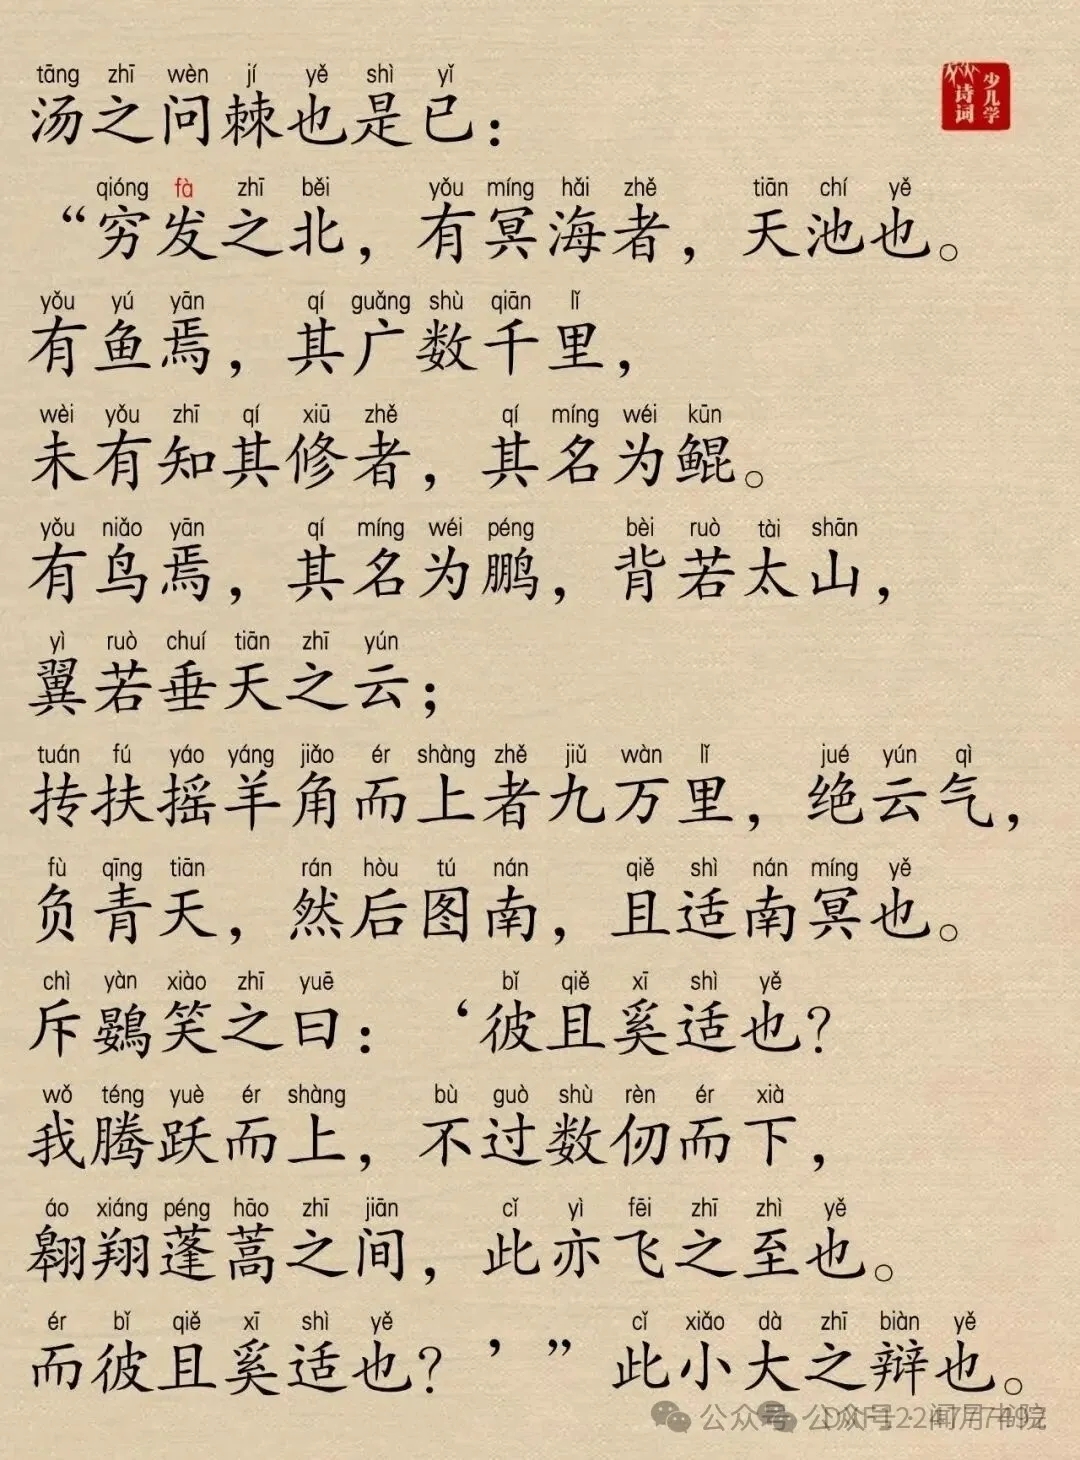 tāng zhī wèn jí yě shì yǐ
汤之问棘也是已：
qióng fà zhī běi yǒu míng hǎi zhě tiān chí yě
“穷发之北，有冥海者，天池也。
yǒu yú yān qí guǎng shù qiān lǐ
有鱼焉，其广数千里，
wèi yǒu zhī qí xiū zhě qí míng wéi kūn
未有知其修者，其名为鲲。
yǒu niǎo yān qí míng wéi péng bèi ruò tài shān
有鸟焉，其名为鹏，背若太山，
yì ruò chuí tiān zhī yún
翼若垂天之云；
tuán fú yáo yáng jiǎo ér shàng zhě jiǔ wàn lǐ jué yún qì
抟扶摇羊角而上者九万里，绝云气，
fù qīng tiān rán hòu tú nán qiě shì nán míng yě
负青天，然后图南，且适南冥也。
chì yàn xiào zhī yuē bǐ qiě xī shì yě
斥鷃笑之曰：‘彼且奚适也？
wǒ téng yuè ér shàng bù guò shù rèn ér xià
我腾跃而上，不过数仞而下，
áo xiáng péng hāo zhī jiān cǐ yì fēi zhī zhì yě
翱翔蓬蒿之间，此亦飞之至也。
ér bǐ qiě xī shì yě cǐ xiǎo dà zhī biàn yě
而彼且奚适也？’”此小大之辩也。
少儿学
诗词
公众号
公众号·闻月书院